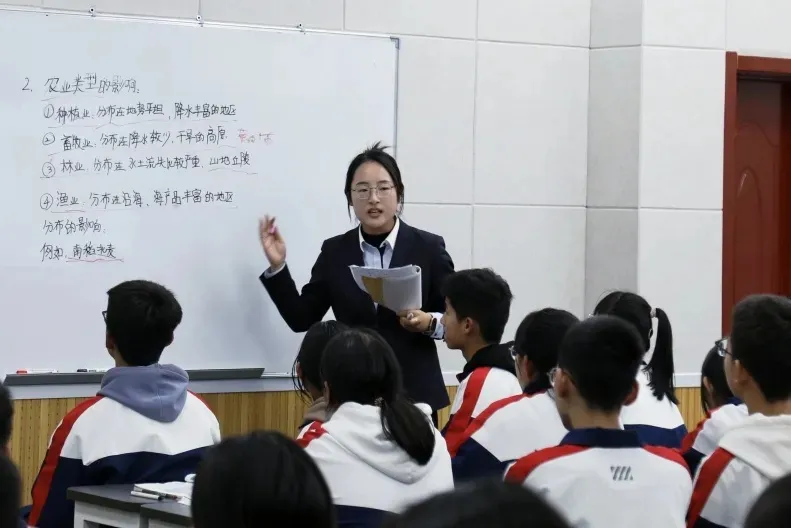 2. 农业类型的影响:
①种植业:分布在地势平坦、降水丰富的地区
②畜牧业:分布在降水较少,干旱的高原
③林业:分布在水土流失比较严重,山地丘陵
④渔业:分布在沿海、海产品丰富的地区
分布的影响:
例如:南稻北麦